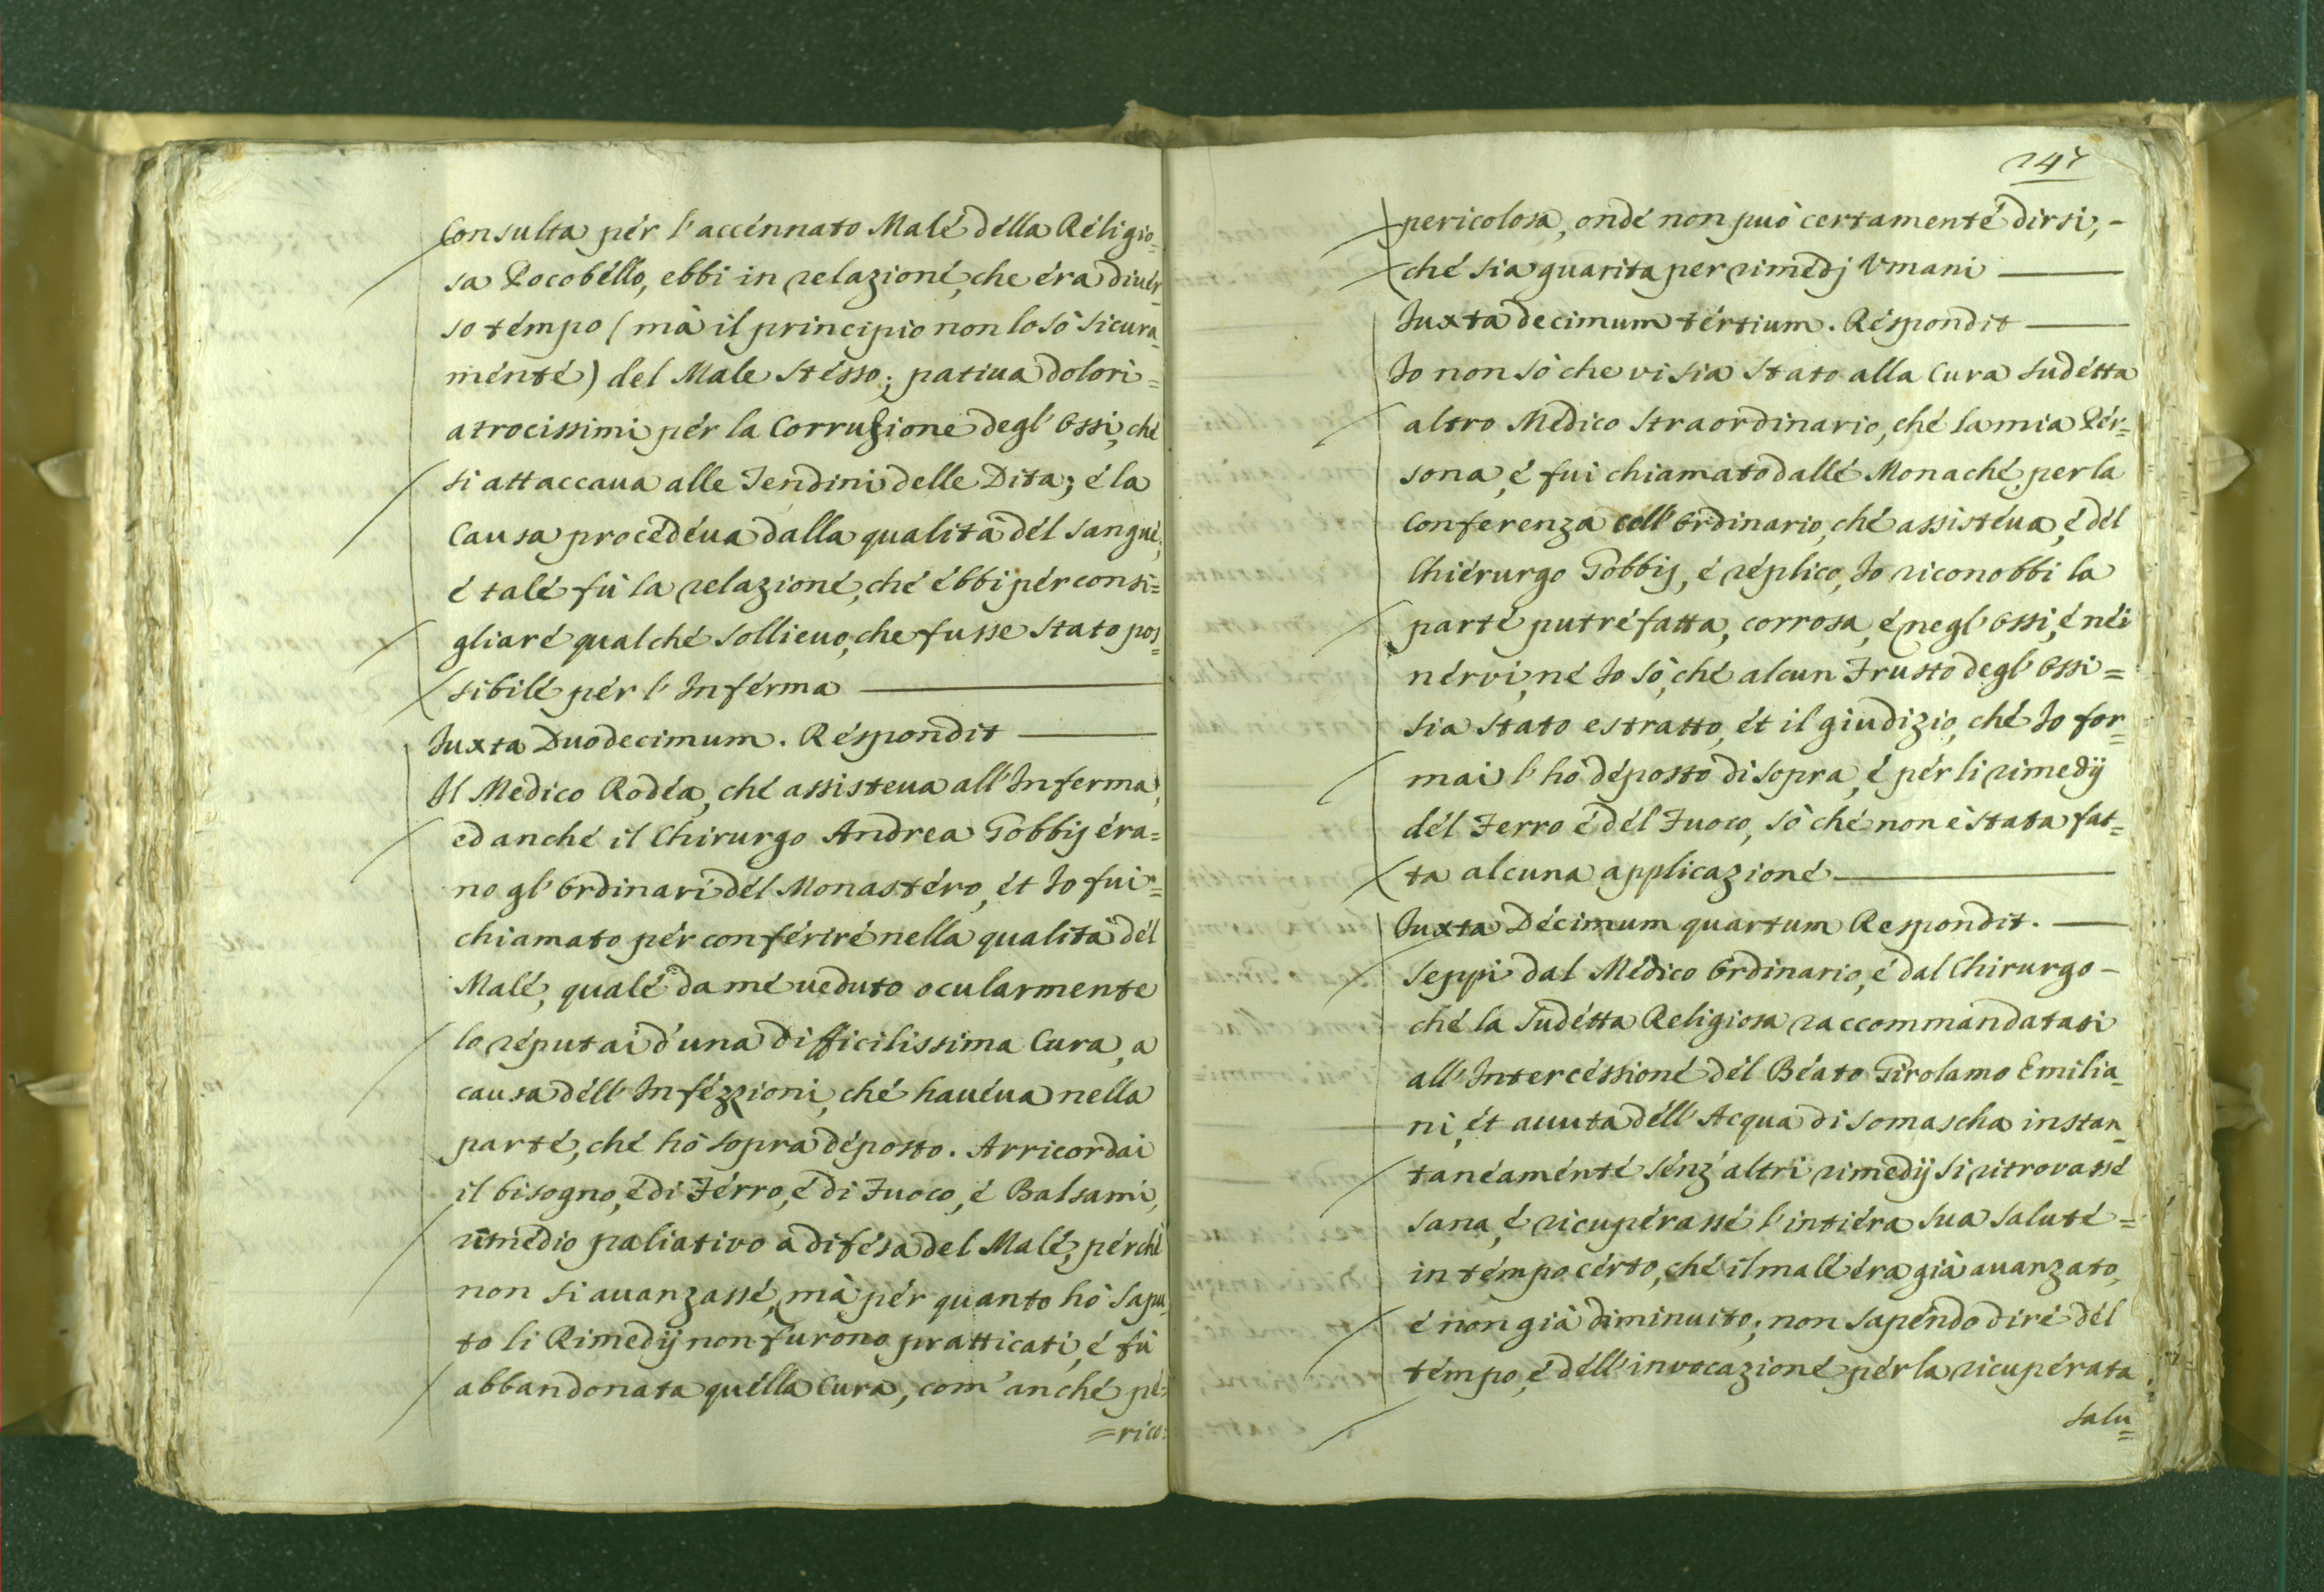 Consulta pér l'accénnato Malé délla Réligio=
sa Pocobéllo, ebbi in relazioné, che éra diuér=
so témpo (mà il principio non lo sò sicura=
ménté) del Male stésso; patiua dolori=
atrocissimi pér la Corruzione degl'Ossi, ché
si attaccaua alle Tendini delle Dita; é la
Causa procedéua dalla qualità dél sangué,
é talé fù la relazioné, ché ébbi pér consi=
gliaré qualché sollieuo, che fusse stato pos=
sibilé pér l'Inférma
Iuxta Duodecimum. Réspondit
Il Medico Rodéa, ché assisteua all'Inferma,
ed anché il Chirurgo Andrea Gobbij éra=
no gl'Ordinari dél Monastéro, ét Io fui=
chiamato pér conférire nella qualità dél
Malé, qualé da mé ueduto ocularmente
lo réputai d'una difficilissima Cura, a
causa déll'Infézzioni, ché hauéua nella
parté, ché hò sopra déposto. Arricordai
il bisogno, é di Férro, é di Fuoco, é Balsami,
rimédio paliativo à difésa del Malé, pérché
non si auanzassé, mà pér quanto hò sapu=
to li Rimedij non furono pratticati, é fù
abbandonata quélla Cura, com'anché pé=
=rico:
247
pericolosa, ondé non può certamenté dirsi,-
ché sia guarita per rimedj Vmani
Iuxta decimum tértium. Réspondit
Io non sò che vi sia stato alla Cura sudétta
altro Médico straordinario, ché la mia Pér=
sona, é fui chiamato dallé Monaché per la
Conferenza coll'Ordinario, ché assistéua, é dél
Chiérurgo Gobbij, é réplico, Io riconobbi la
parté putréfatta, corrosa, é negl'Ossi, é néi
nérvi, né Io sò, ché alcun Frusto degl'Ossi=
sia stato estratto, ét il giudizio, ché Io for=
mai l'hò déposto di sopra, é pér li rimedij
dél Ferro é dél Fuoco, sò ché non è stata fat=
ta alcuna applicazioné
Iuxta Décimum quartum Respondit.
Seppi dal Médico Ordinario, é dal Chirurgo-
ché la sudétta Religiosa raccommandatasi
all'Intercéssioné dél Béato Girolamo Emilia=
ni, ét auuta déll'Acqua di Somascha instan=
tanéaménté sénz'altri rimedij si ritrovassé
sana, é ricupérassé l'intiéra sua saluté=
in témpo cérto, ché il malé éra già auanzato,
é non già diminuito; non sapéndo diré dél
témpo, é déll'invocazioné pér la ricupérata
salu=